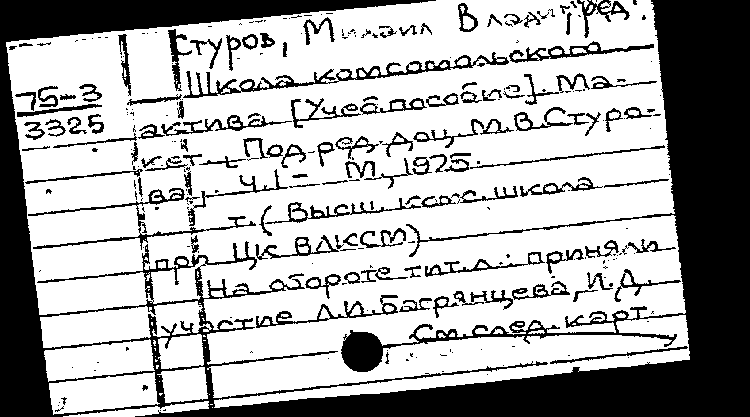 Стуров, Михаил Влади ред.
75-3
3325
Школа комсомольского
актива [Учеб. пособие]. Ма-
кет. Под ред. доц. М.В. Стуро-
ва. Ч.1- М., 1975.
т. (Высш. комс. школа
при ЦК ВЛКСМ)
На обороте тит. л.: приняли
участие Л.И. Багрянцева, И.Д.
См. след. карт.